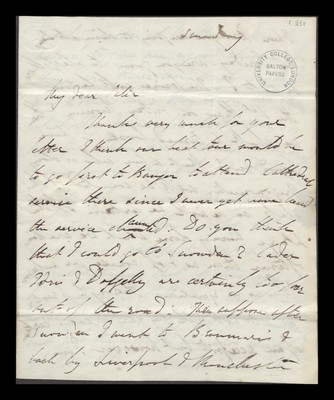 Sunday
UNIVERSITY COLLEGE LONDON
GALTON PAPERS
My dear
Thanks very much for your
letter I think our best tour would be
to go first to Bangor to attend Cathedral
service there since I never yet have heard
the service chaunted. Do you think
that I could go to Snowdon? Cader
Idris & Dolgelly are certainly too far
out of the road. Then suppose after
Snowdon I went to Beaumaris &
back by Liverpool & Manchester